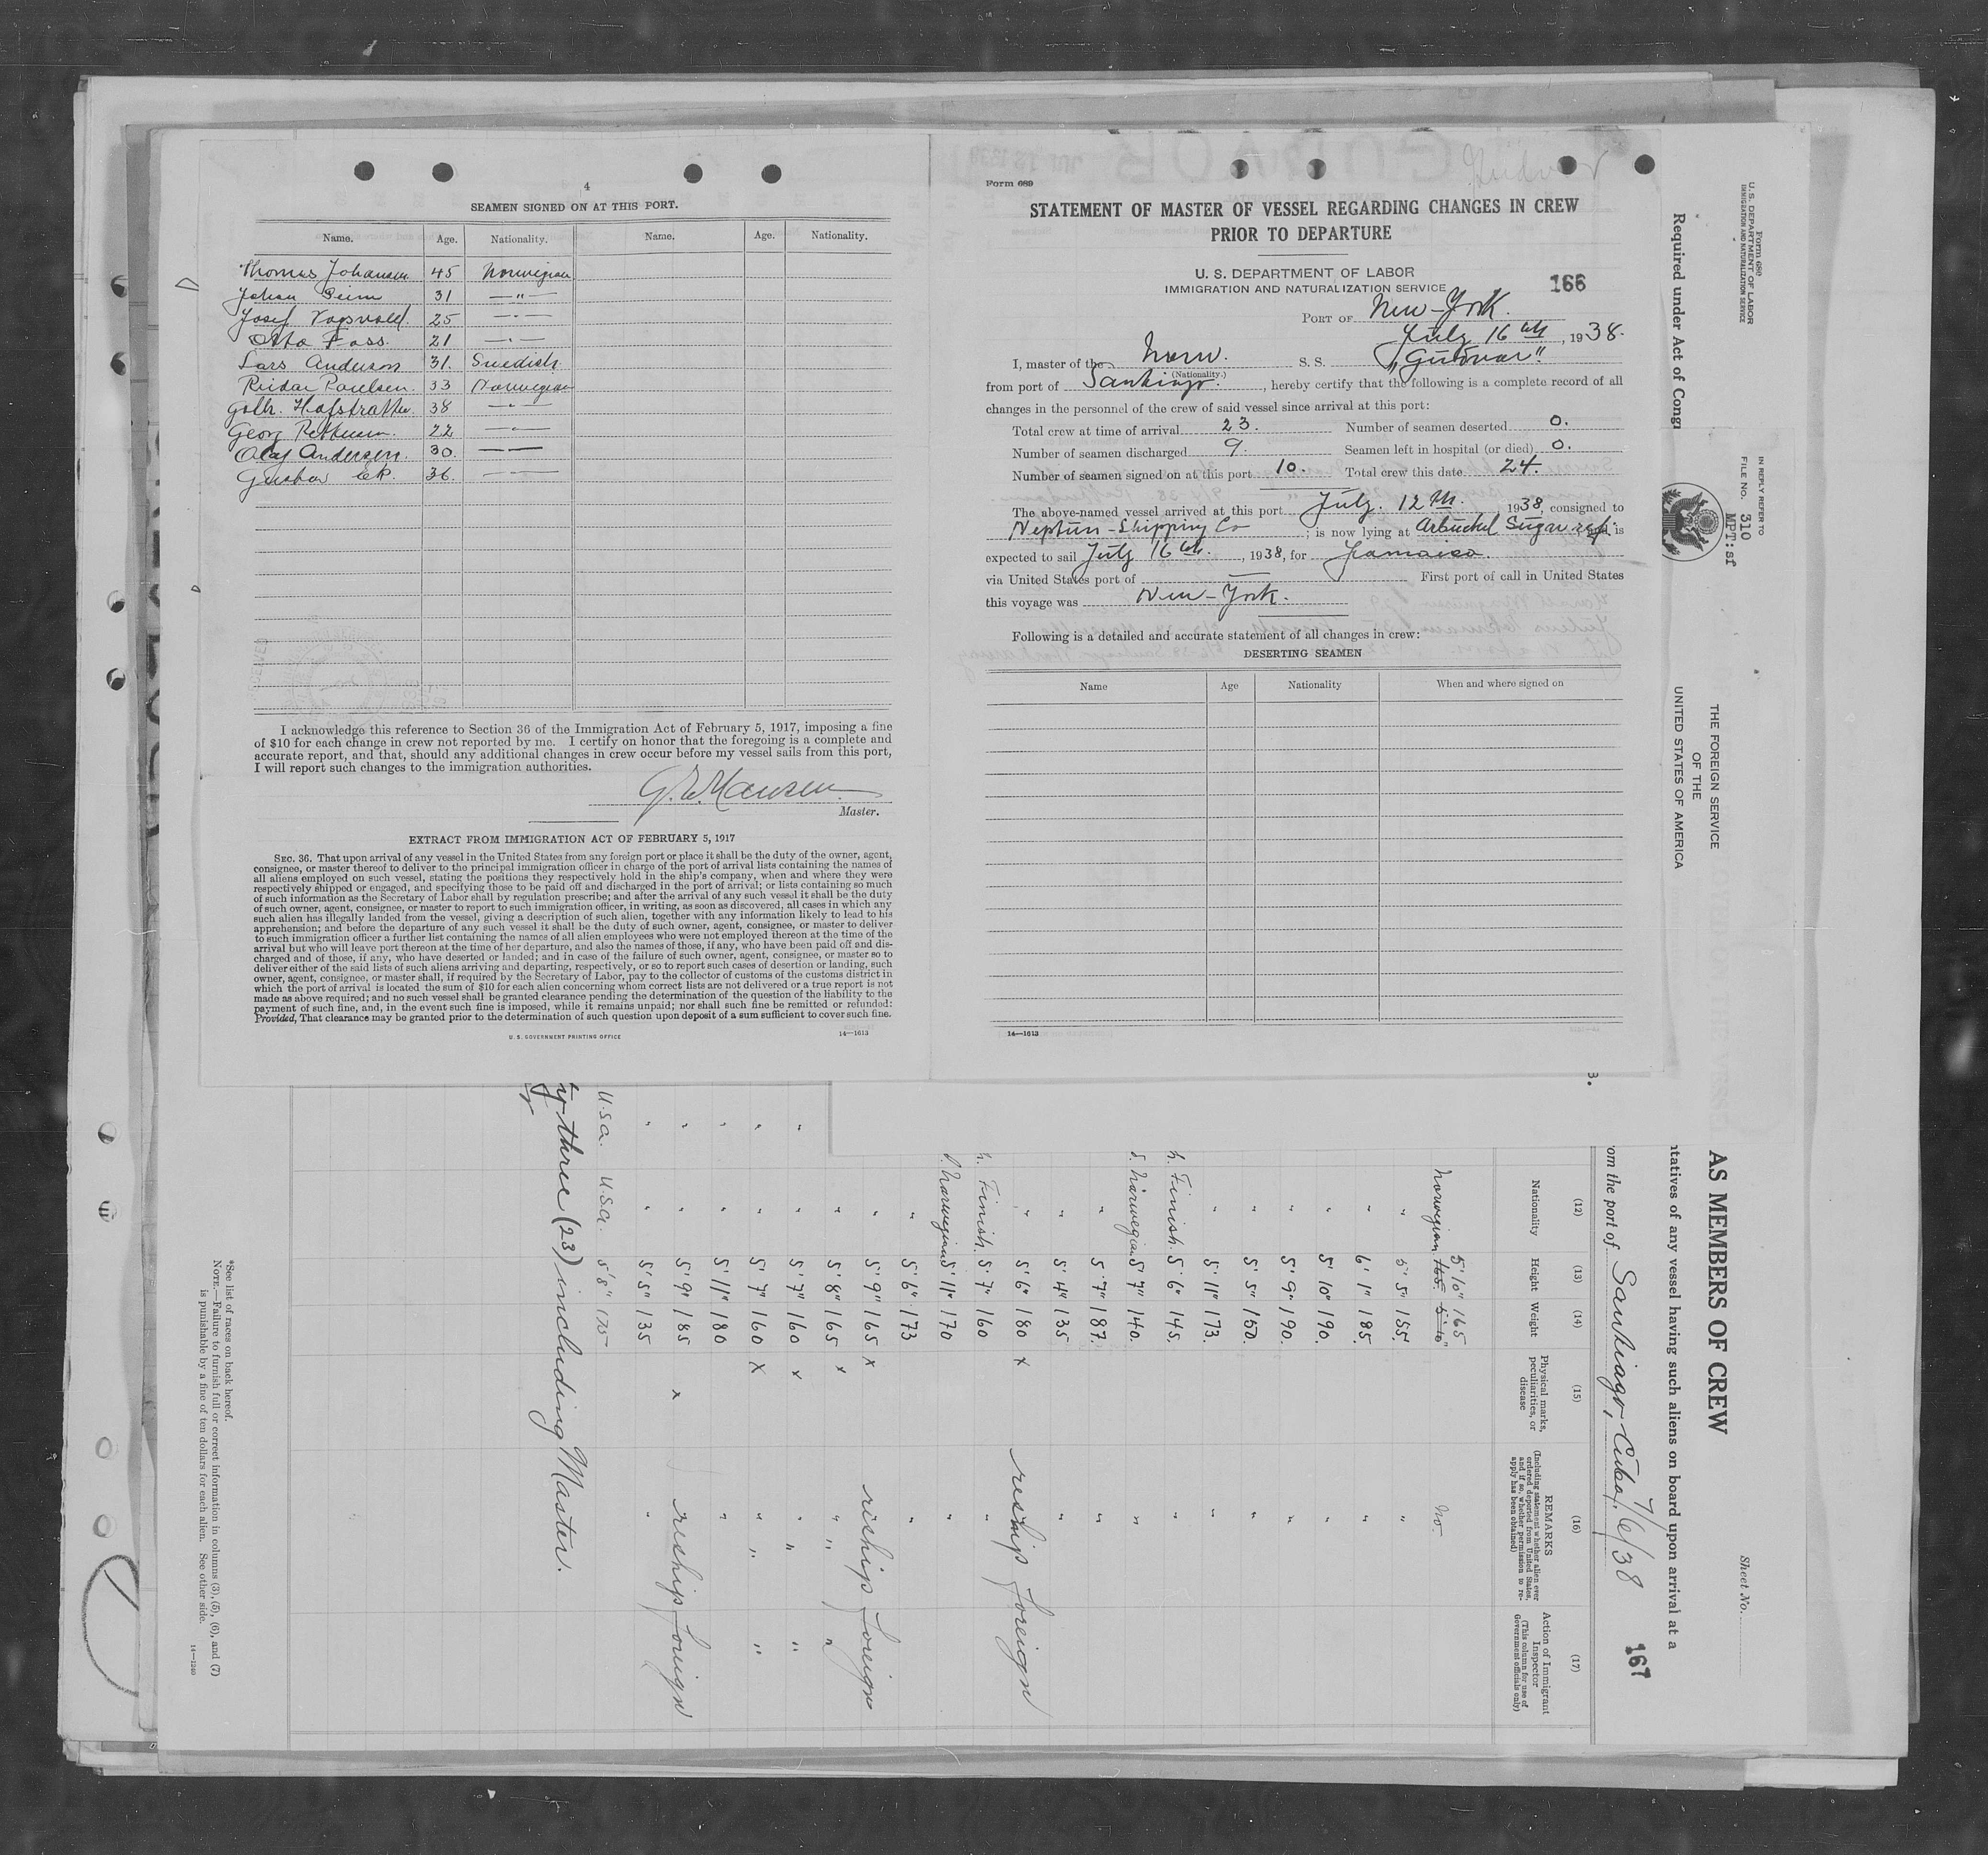 4
SEAMEN SIGNED ON AT THIS PORT.
Name. Age. Nationality. Name. Age. Nationality.
Thomas Johansen 45 Norwegian
Johan 31 — " —
Josef 25 — " —
Otto Foss. 21 — " —
Lars Anderson 31. Swedish.
Reidar Paulsen. 33 Norwegian
38 — " —
Georg 22 — " —
Olaf Andersen. 30. — " —
Gustav Ek. 36. — " —
I acknowledge this reference to Section 36 of the Immigration Act of February 5, 1917, imposing a fine
of $10 for each change in crew not reported by me. I certify on honor that the foregoing is a complete and
accurate report, and that, should any additional changes in crew occur before my vessel sails from this port,
I will report such changes to the immigration authorities.
Hansen
Master.
EXTRACT FROM IMMIGRATION ACT OF FEBRUARY 5, 1917
SEC. 36. That upon arrival of any vessel in the United States from any foreign port or place it shall be the duty of the owner, agent,
consignee, or master thereof to deliver to the principal immigration officer in charge of the port of arrival lists containing the names of
all aliens employed on such vessel, stating the positions they respectively hold in the ship's company, when and where they were
respectively shipped or engaged, and specifying those to be paid off and discharged in the port of arrival; or lists containing so much
of such information as the Secretary of Labor shall by regulation prescribe; and after the arrival of any such vessel it shall be the duty
of such owner, agent, consignee, or master to report to such immigration officer, in writing, as soon as discovered, all cases in which any
such alien has illegally landed from the vessel, giving a description of such alien, together with any information likely to lead to his
apprehension; and before the departure of any such vessel it shall be the duty of such owner, agent, consignee, or master to deliver
to such immigration officer a further list containing the names of all alien employees who were not employed thereon at the time of the
arrival but who will leave port thereon at the time of her departure, and also the names of those, if any, who have been paid off and dis-
charged and of those, if any, who have deserted or landed; and in case of the failure of such owner, agent, consignee, or master so to
deliver either of the said lists of such aliens arriving and departing, respectively, or so to report such cases of desertion or landing, such
owner, agent, consignee, or master shall, if required by the Secretary of Labor, pay to the collector of customs of the customs district in
which the port of arrival is located the sum of $10 for each alien concerning whom correct lists are not delivered or a true report is not
made as above required; and no such vessel shall be granted clearance pending the determination of the question of the liability to the
payment of such fine, and, in the event such fine is imposed, while it remains unpaid; nor shall such fine be remitted or refunded:
Provided, That clearance may be granted prior to the determination of such question upon deposit of a sum sufficient to cover such fine.
U. S. GOVERNMENT PRINTING OFFICE 14—1613
Form 689
STATEMENT OF MASTER OF VESSEL REGARDING CHANGES IN CREW
PRIOR TO DEPARTURE
U. S. DEPARTMENT OF LABOR
IMMIGRATION AND NATURALIZATION SERVICE
166
PORT OF New-York.
July 16th, 1938.
I, master of the Norw. S. S. „Gudvor"
(Nationality.)
from port of Santiago., hereby certify that the following is a complete record of all
changes in the personnel of the crew of said vessel since arrival at this port:
Total crew at time of arrival 23. Number of seamen deserted 0.
Number of seamen discharged 9. Seamen left in hospital (or died) 0.
Number of seamen signed on at this port 10. Total crew this date 24.
The above-named vessel arrived at this port July. 12th., 1938, consigned to
Neptun-Shipping Co; is now lying at Arbuckel Sugar ref. and is
expected to sail July 16th., 1938, for Jamaica.
via United States port of — First port of call in United States
this voyage was New-York.
Following is a detailed and accurate statement of all changes in crew:
DESERTING SEAMEN
Name Age Nationality When and where signed on
14—1613
Form 689
U. S. DEPARTMENT OF LABOR
IMMIGRATION AND NATURALIZATION SERVICE
Required under Act of Congr
IN REPLY REFER TO
FILE No. 310
MPT:sf
THE FOREIGN SERVICE
OF THE
UNITED STATES OF AMERICA
AS MEMBERS OF CREW
Sheet No.
ntatives of any vessel having such aliens on board upon arrival at a
om the port of Santiago, Cuba, 7/6/38
167
(12) (13) (14) (15) (16) (17)
Nationality Height Weight
Physical marks, peculiarities, or disease
REMARKS
(Including statement whether alien ever ordered deported from United States, and if so, whether permission to re-apply has been obtained)
Action of Immigrant Inspector
(This column for use of Government officials only)
Norwegian 5'10" 165 No.
" 5'5" 155. "
" 6'1" 185. "
" 5'10" 190. "
" 5'9" 190. "
" 5'5" 150. "
" 5'11" 173. "
Finish. 5'6" 145. "
S. Norwegian 5'7" 140. "
" 5'7" 187. "
" 5'4" 135 "
" 5'6" 180 x reship foreign
Finish. 5'7" 160 "
Norwegian 5'11" 170 "
" 5'6" 173 "
" 5'9" 165 x reship foreign
" 5'8" 165 x " " "
" 5'7" 160 x " " "
" 5'7" 160 x " " "
" 5'11" 180 "
" 5'9" 185 x reship foreign
" 5'5" 135 "
U.S.a. U.S.a. 5'8" 175
ty three (23) including Master.
*See list of races on back hereof.
NOTE.—Failure to furnish full or correct information in columns (3), (5), (6), and (7)
is punishable by a fine of ten dollars for each alien. See other side.
14—1240